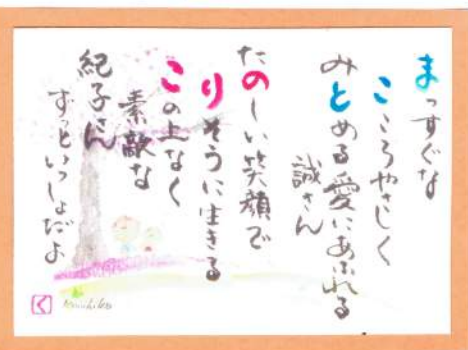 まっすぐな
こころやさしく
みとめる愛にあふれる
誠さん
たのしい笑顔で
りそうに生きる
この上なく
素敵な
紀子さん
ずっといっしょだよ
く